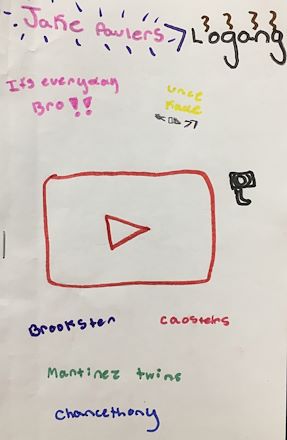 Jake Paulers > Logang
It's everyday
Bro!!
unce
Brookster
Caosters
Martinez twins
Chancethony